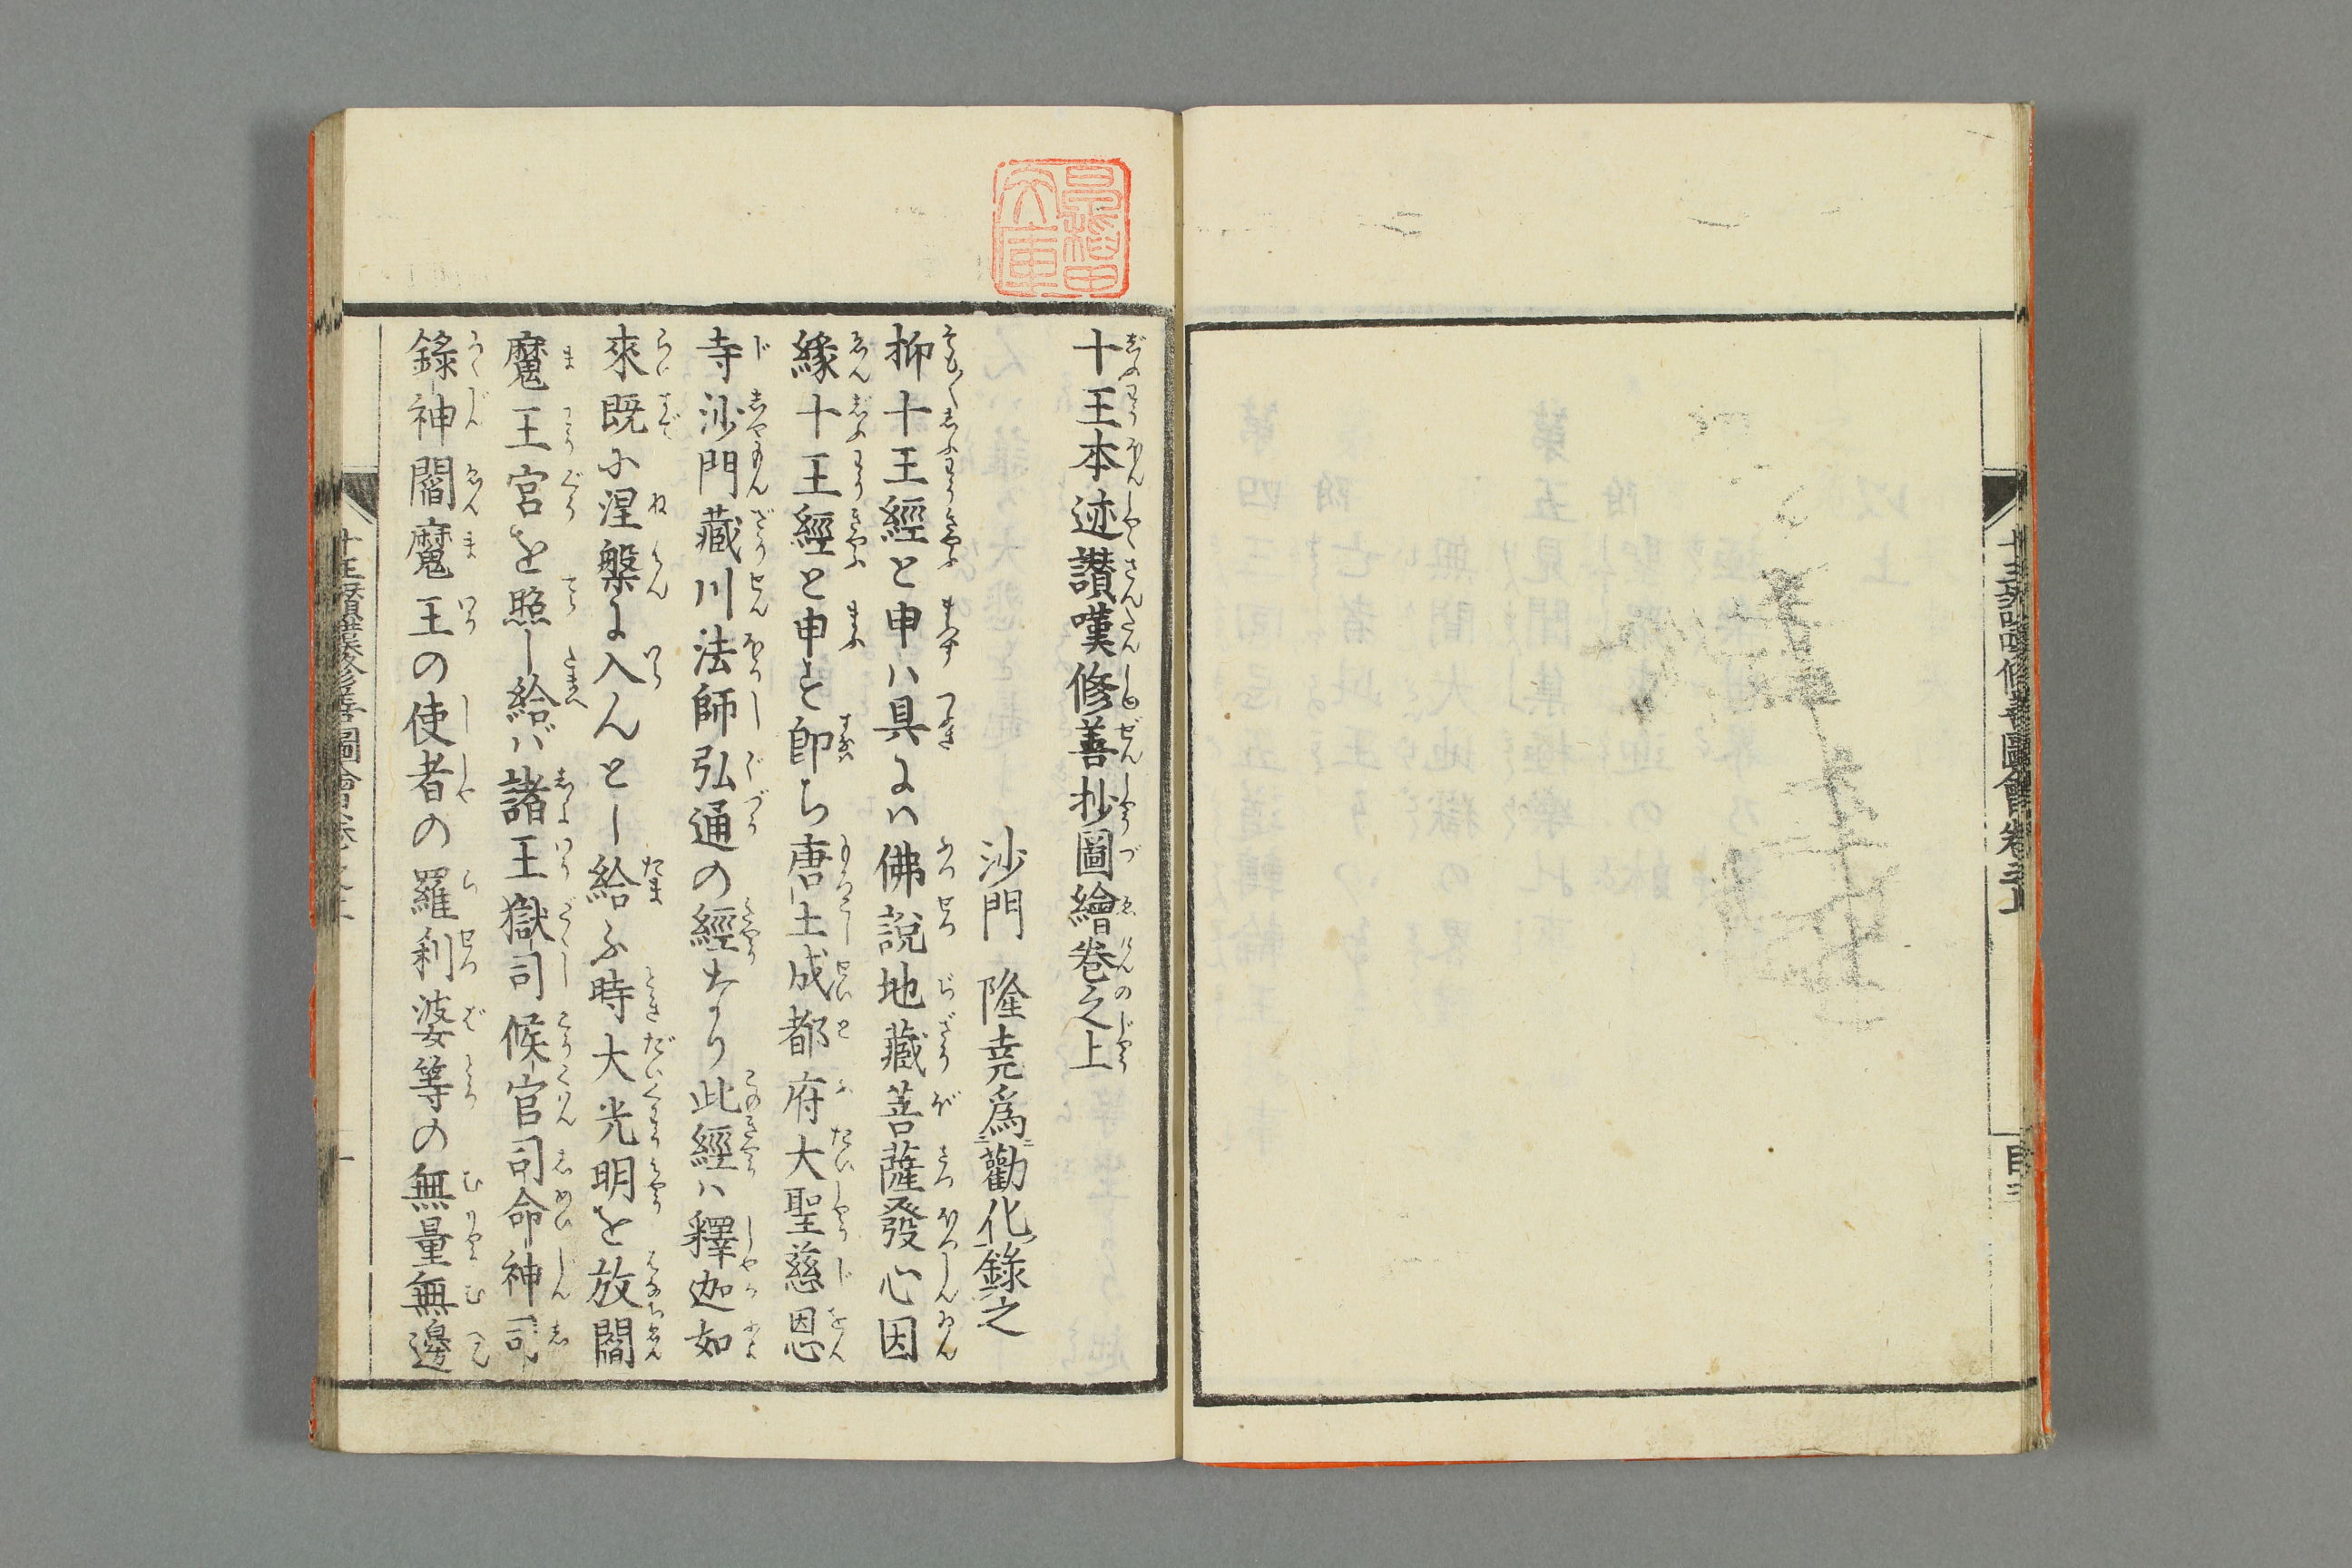 十王本迹讃嘆修善抄圖繪卷之上
沙門 隆堯爲勸化錄之
抑十王經と申ハ具にハ佛說地藏菩薩發心因
緣十王經と申す卽ち唐土成都府大聖慈恩
寺沙門藏川法師弘通の經なり此經ハ釋迦如
來既に涅槃に入んとし給ふ時大光明を放閻
魔王宮を照し給バ諸王獄司候官司命神司
錄神閻魔王の使者の羅刹婆等の無量無邊